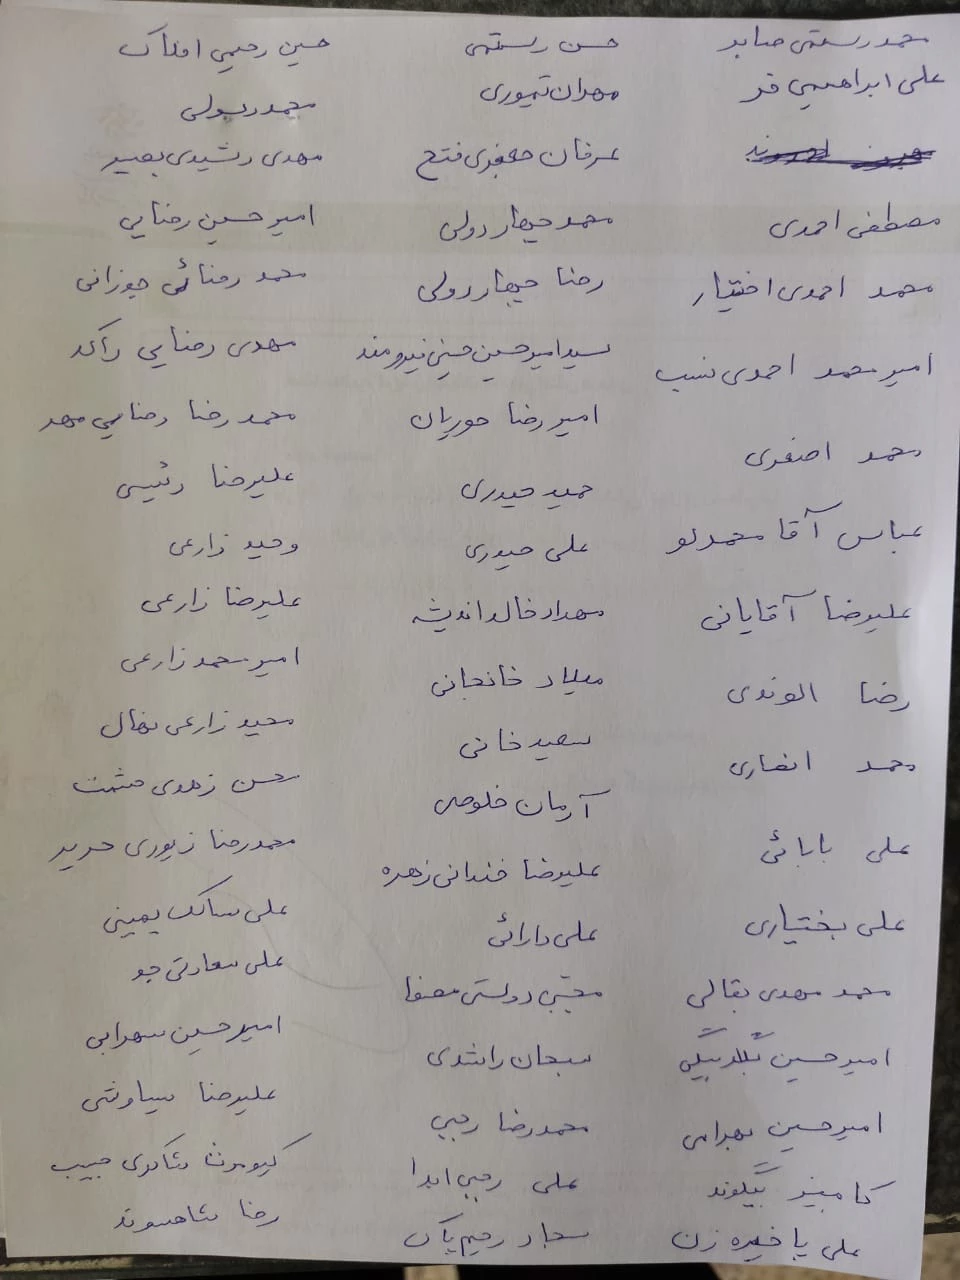 محمد رستمی صابر
علی ابراهیمی فر
مصطفی احمدی
محمد احمدی اختیار
امیر محمد احمدی نسب
محمد اصغری
عباس آقا محمدلو
علیرضا آقایانی
رضا الوندی
محمد انصاری
علی بابائی
علی بختیاری
محمد مهدی بقالی
امیرحسین بگلربیگی
امیرحسین بهرامی
کامبیز بیگوند
علی پا خیره زن
حسن رستمی
مهران تیموری
عرفان جعفری فتح
محمد چهاردولی
رضا چهاردولی
سید امیرحسین حسینی نیرومند
امیررضا حوریان
حمید حیدری
علی حیدری
مهرداد خالد اندیشه
میلاد خانجانی
سعید خانی
آرمان خلوصی
علیرضا خندانی زهره
علی دارائی
مجتبی دوستی مصفا
سبحان راشدی
محمدرضا رجبی
علی رجبی
سجاد رحیم پاک
حسین رحیمی املاک
محمد رسولی
مهدی رشیدی بصیر
امیرحسین رضایی
محمد رضائی جوزانی
مهدی رضایی راکد
محمد رضا رضایی مهر
علیرضا رئیسی
وحید زارعی
علیرضا زارعی
امیرمحمد زارعی
مجید زارعی نهال
محسن زهدی حشمت
محمدرضا زیوری
علی سالک یمینی
علی سعادتی جو
امیرحسین سهرابی
علیرضا سیاوشی
کیومرث شاکری حبیب
رضا شاهسوند